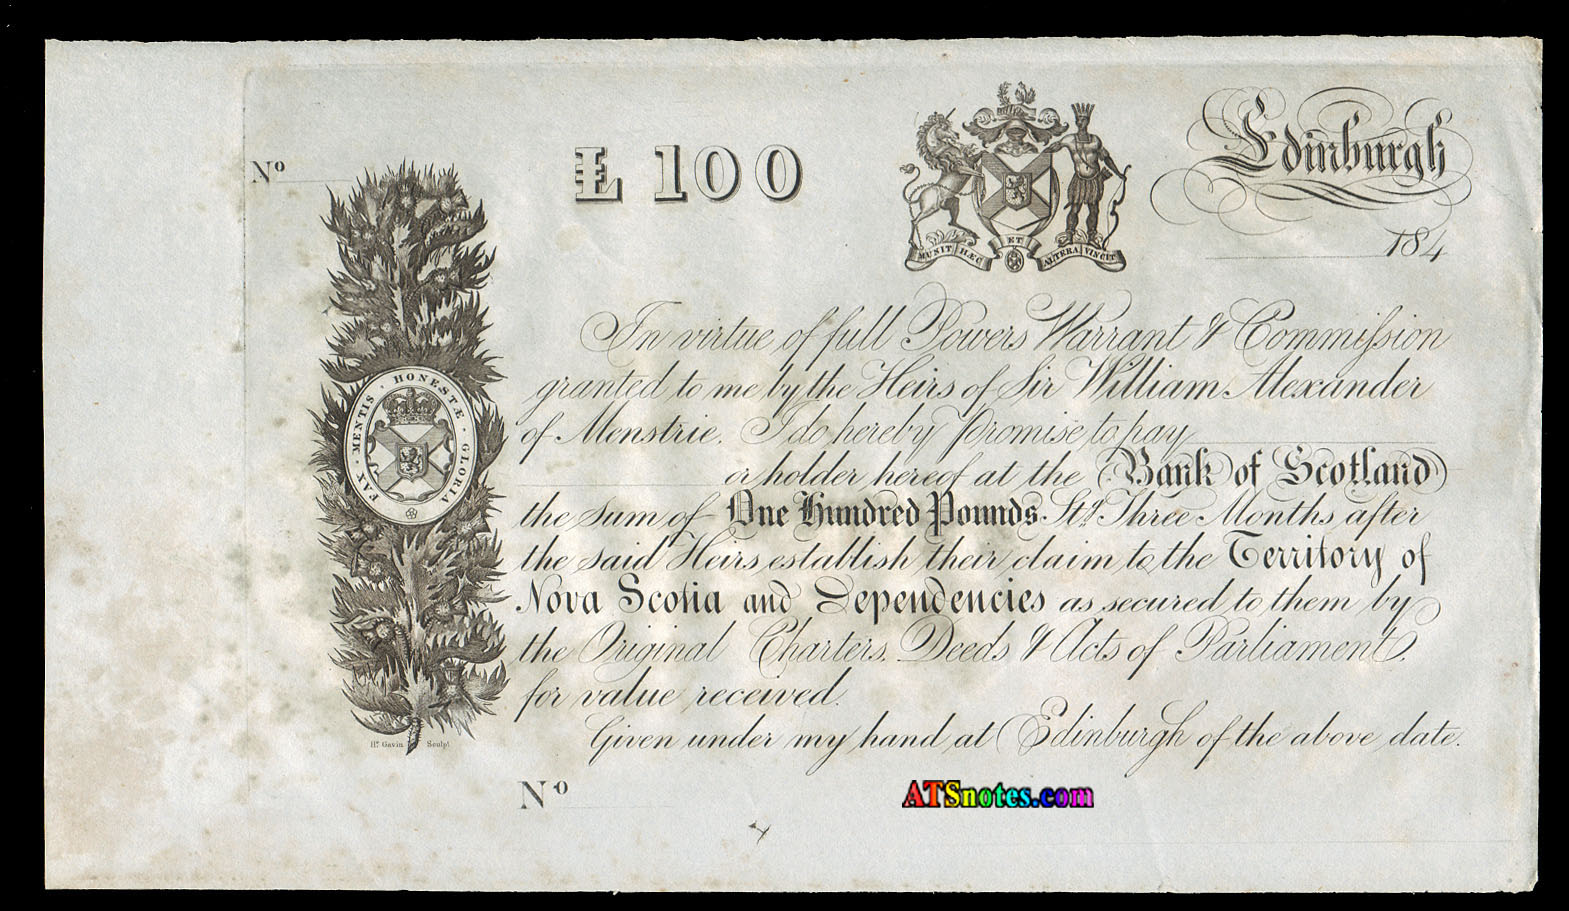 Nº
£ 100
MUNIT HÆC ET ALTERA VINCIT
Edinburgh
184
In virtue of full Powers Warrant & Commiſsion
granted to me by the Heirs of Sir William Alexander
of Menstrie. I do hereby Promise to pay
or holder hereof at the Bank of Scotland
the sum of One Hundred Pounds Stg. Three Months after
the said Heirs establish their claim to the Territory of
Nova Scotia and Dependencies as secured to them by
the Original Charters, Deeds & Acts of Parliament,
for value received.
Given under my hand at Edinburgh of the above date.
FAX · MENTIS · HONESTÆ · GLORIA
Hr. Gavin Sculpt
Nº
ATSnotes.com